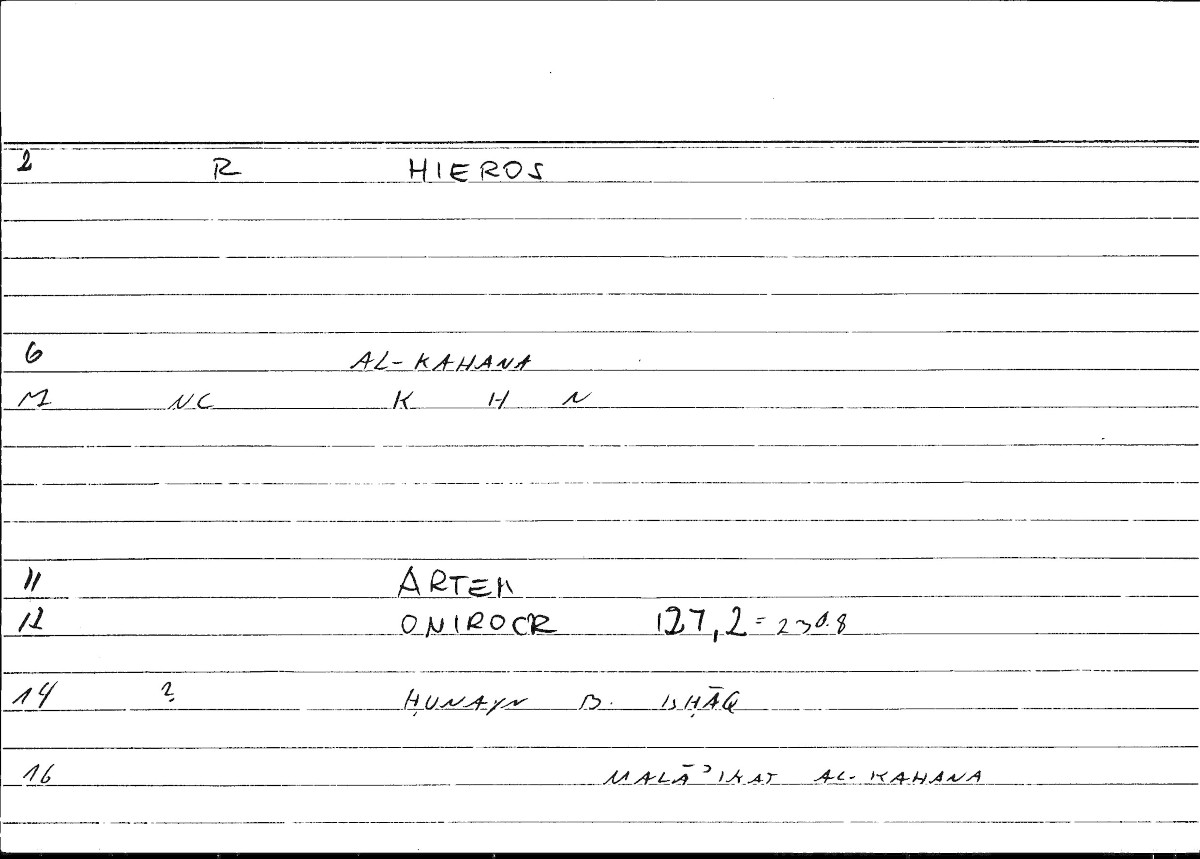 2 R HIEROS
6 AL-KAHANA
M NC K H N
11 ARTEM
12 ONIROCR 127,2 = 230.8
14 ? ḤUNAYN B. ISḤĀQ
16 MALĀʾIKAT AL-KAHANA